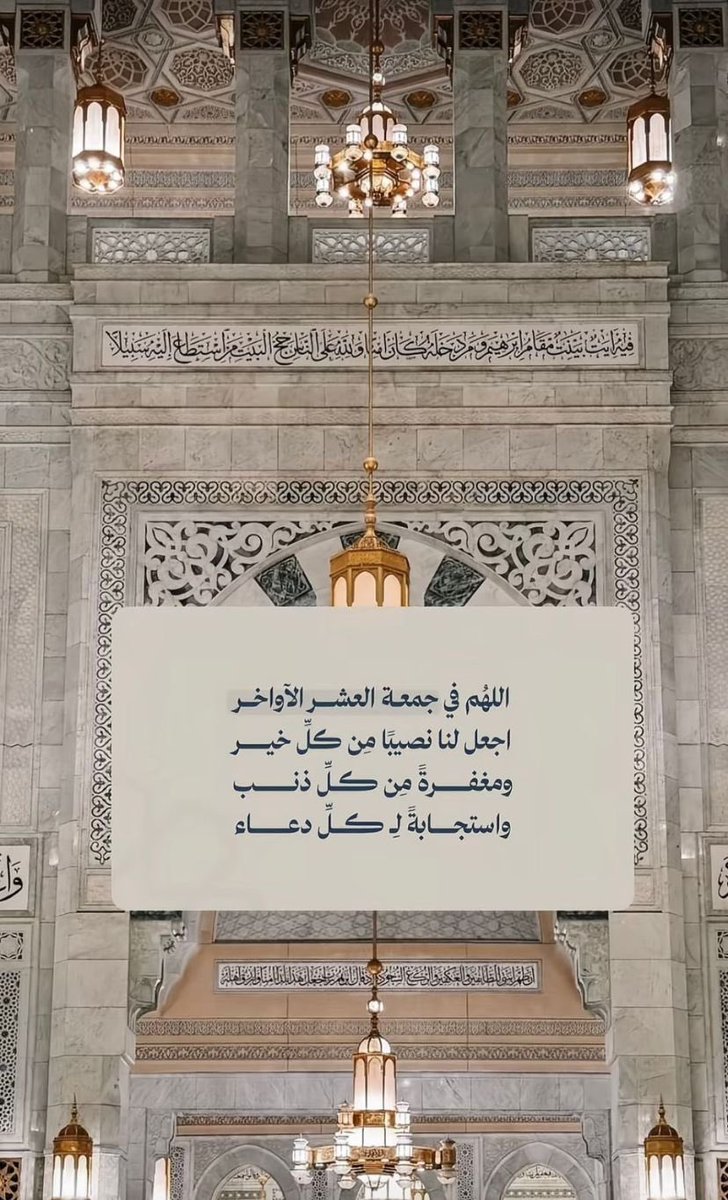 فيه ايت بينت مقام ابرهيم ومن دخله كان امنا ولله على الناس حج البيت من استطاع اليه سبيلا
اللهُم في جمعة العشر الآواخر
اجعل لنا نصيبًا مِن كلِّ خير
ومغفرةً مِن كلِّ ذنب
واستجابةً لِـ كلِّ دعاء